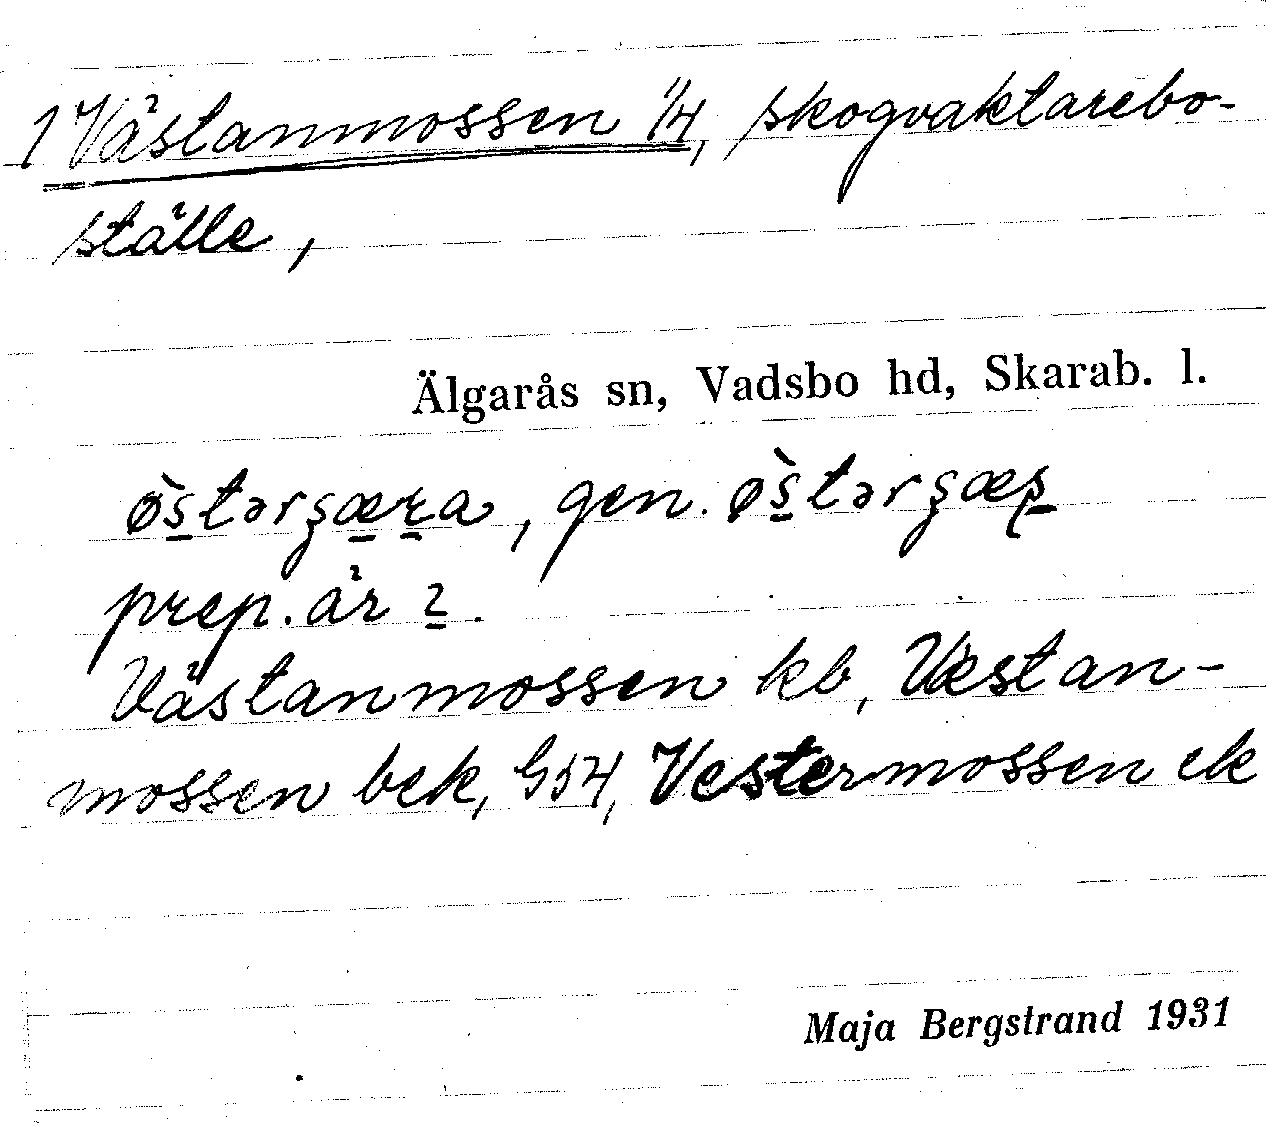 1 Västanmossen 1/4, skogvaktarebo-
ställe,
Älgarås sn, Vadsbo hd, Skarab. l.
østərgæra, gen. østərgæs
prep. är 2.
Västanmossen kb, Vestan-
mossen bek, G54, Vestermossen ek
Maja Bergstrand 1931